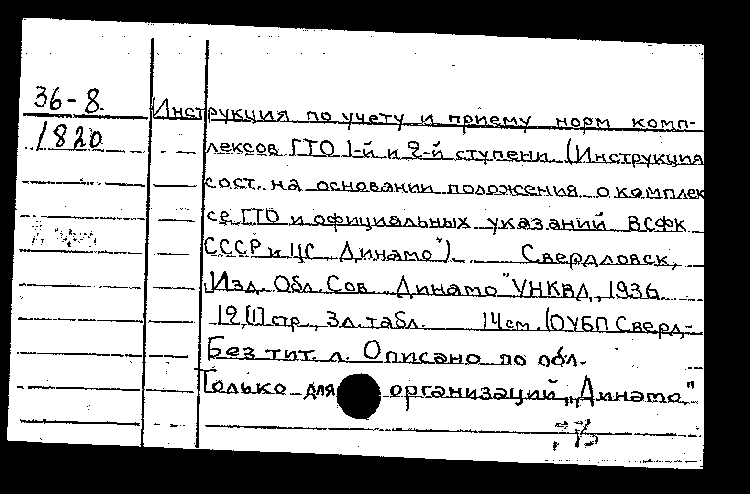 36-8
1820
Инструкция по учету и приему норм комп-
лексов ГТО 1-й и 2-й ступени. (Инструкция
сост. на основании положения о комплек
се ГТО и официальных указаний ВСФК
СССР и ЦС Динамо")
Свердловск,
Изд. Обл. Сов. Динамо" УНКВД, 1936
19,[1] стр., 3 л. табл. 14 см. (ОУБП Сверд-
Без тит. л. Описано по обл.
Только для организаций „Динамо"